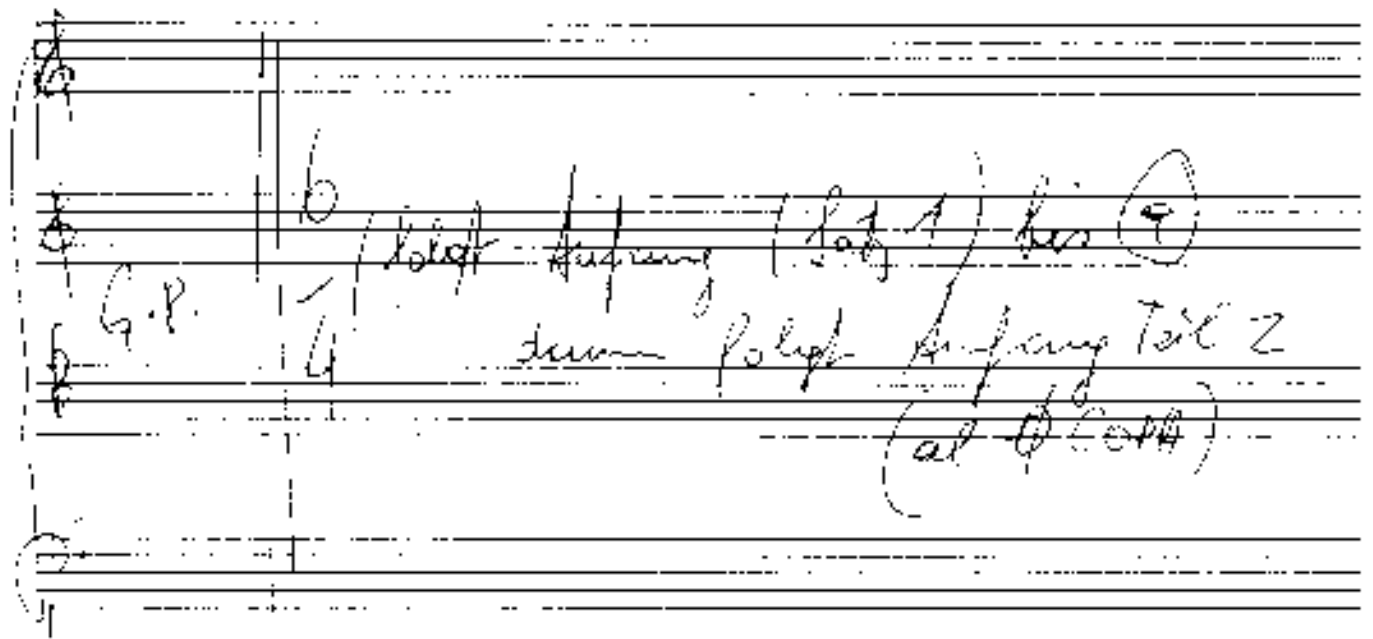 6 folgt Anfang (Satz 1) bis
G.P. 4 dann folgt Anfang Teil 2
(al CODA)